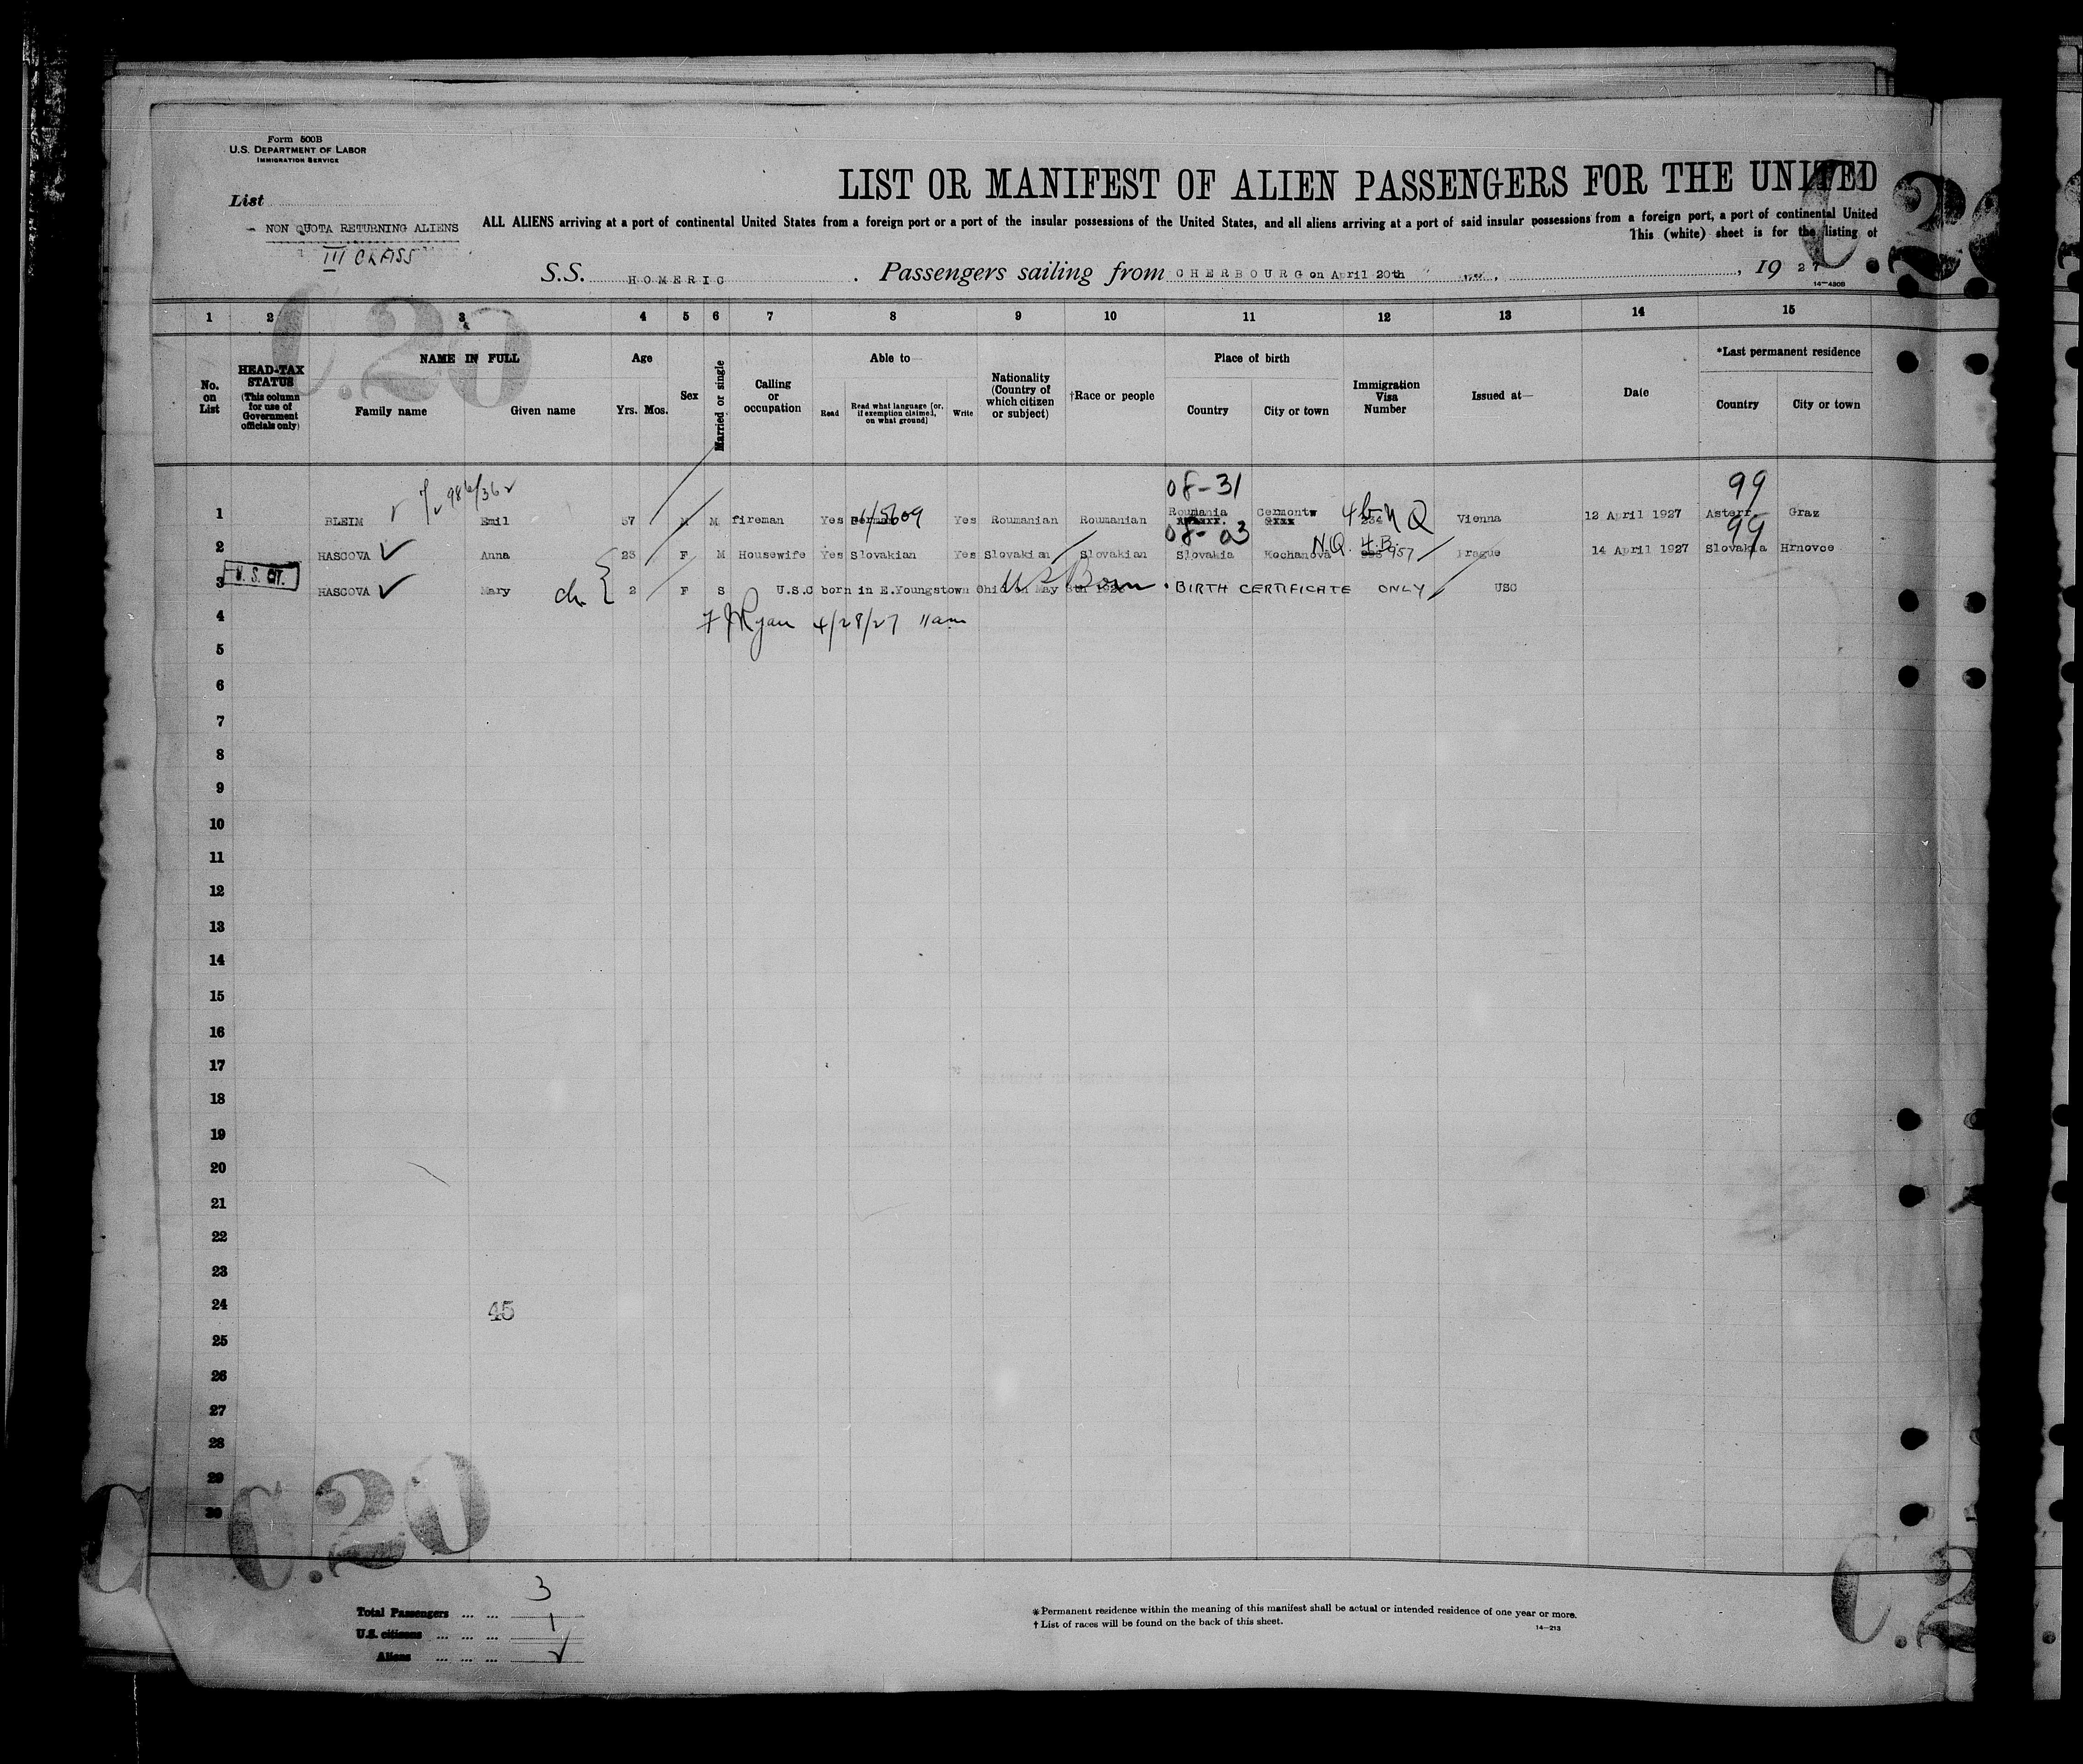 Form 500B
U.S. DEPARTMENT OF LABOR
IMMIGRATION SERVICE
LIST OR MANIFEST OF ALIEN PASSENGERS FOR THE UNITED
List
NON QUOTA RETURNING ALIENS
III CLASS
ALL ALIENS arriving at a port of continental United States from a foreign port or a port of the insular possessions of the United States, and all aliens arriving at a port of said insular possessions from a foreign port, a port of continental United
This (white) sheet is for the listing of
S.S. HOMERIC. Passengers sailing from CHERBOURG on April 20th, 1927
14-430B
C.20
C.20
1 2 3 4 5 6 7 8 9 10 11 12 13 14 15
No. on List
HEAD-TAX STATUS (This column for use of Government officials only)
NAME IN FULL
Family name Given name
Age
Yrs. Mos.
Sex
Married or single
Calling or occupation
Able to
Read Read what language [or, if exemption claimed, on what ground] Write
Nationality (Country of which citizen or subject)
†Race or people
Place of birth
Country City or town
Immigration Visa Number
Issued at—
Date
*Last permanent residence
Country City or town
08-31 99
1 BLEIM Emil 57 M M fireman Yes Yes Roumanian Roumanian Roumania Cermontw 4b NQ Vienna 12 April 1927 Austerr Graz
08-03 NQ. 4.B. 99
2 HASCOVA Anna 23 F M Housewife Yes Slovakian Yes Slovakian Slovakian Slovakia Kochanova 957 Prague 14 April 1927 Slovakia Hrnovce
U. S. CIT.
3 HASCOVA Mary ch. 2 F S U.S.C born in E.Youngstown Ohio on May US Born BIRTH CERTIFICATE ONLY USC
4 F J Ryan 4/28/27 11am
5
6
7
8
9
10
11
12
13
14
15
16
17
18
19
20
21
22
23
24 45
25
26
27
28
29
30
C.20
C.2
Total Passengers ... ... 3
U.S. citizens ... ... ... 1
Aliens ... ... ...
*Permanent residence within the meaning of this manifest shall be actual or intended residence of one year or more.
† List of races will be found on the back of this sheet.
14-213